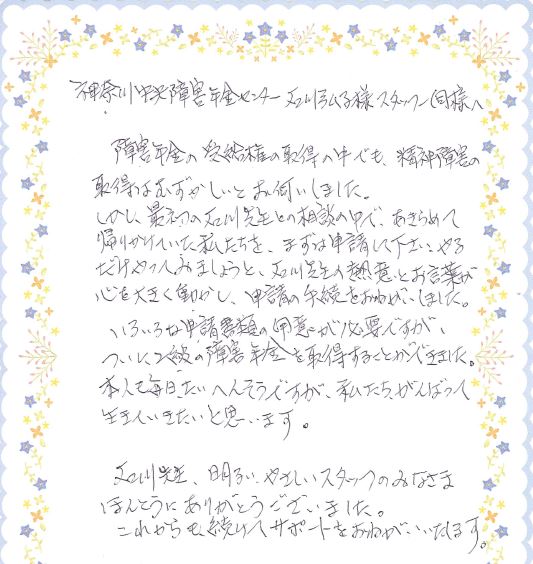 神奈川中央障害年金センター石川弘子様スタッフ一同様へ
障害年金の受給権の取得の中でも、精神障害の
取得はむずかしいとお伺いしました。
しかし最初の石川先生との相談の中で、あきらめて
帰りかけていた私たちを、まずは申請して下さい、やる
だけやってみましょうと、石川先生の熱意とお言葉が
心を大きく動かし、申請の手続をおねがいしました。
いろいろな申請書類の用意が必要ですが、
ついに2級の障害年金を取得することができました。
本人も毎日たいへんそうですが、私たちがんばって
生きていきたいと思います。
石川先生、明るい、やさしいスタッフのみなさま
ほんとうにありがとうございました。
これからも続けてサポートをおねがいいたします。